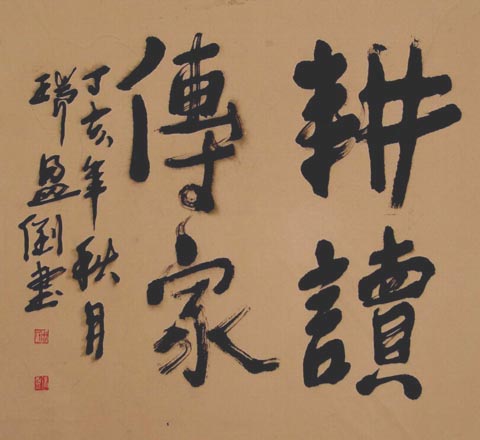 耕讀
傳家
丁亥年秋月
瑞盈倒書